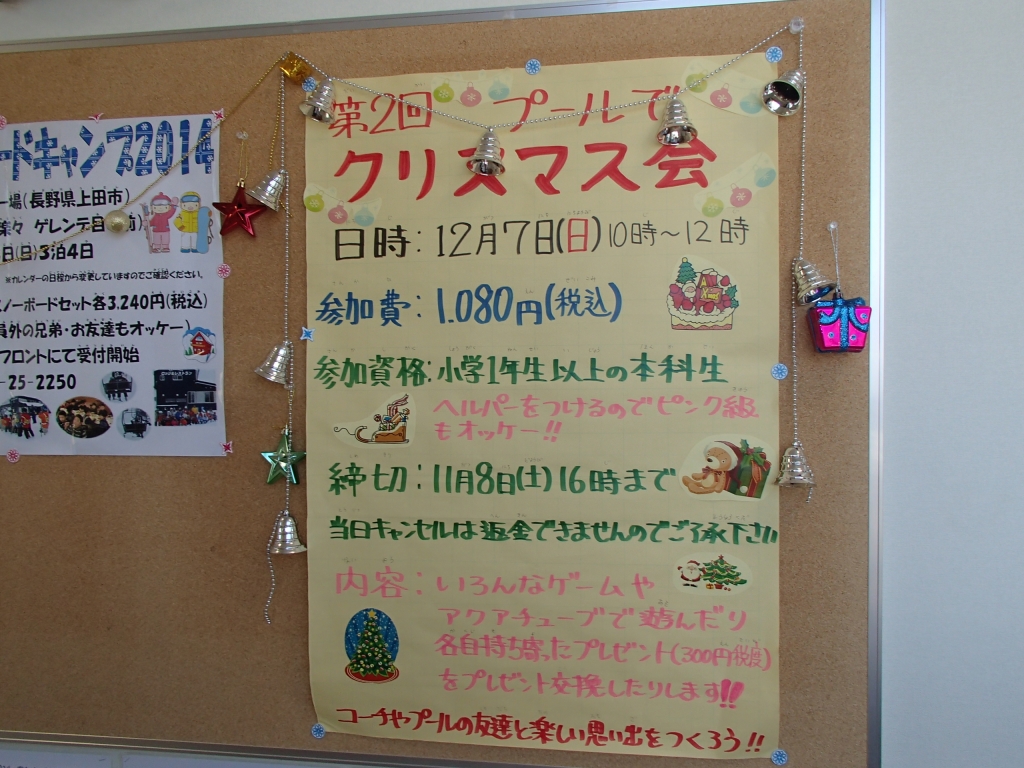 ードキャンプ2014
場(長野県上田市)
ゲレンデ目の前)
日(日)3泊4日
※カレンダーの日程から変更していますのでご確認ください。
ノーボードセット各3,240円(税込)
員外の兄弟・お友達もオッケー)
フロントにて受付開始
-25-2250
第2回 プールで
クリスマス会
日時:12月7日(日)10時～12時
参加費:1.080円(税込)
参加資格:小学1年生以上の本科生
ヘルパーをつけるのでピンク級
もオッケー!!
締切:11月8日(土)16時まで
当日キャンセルは返金できませんのでご了承下さい
内容:いろんなゲームや
アクアチューブで遊んだり
各自持ち寄ったプレゼント(300円程度)
をプレゼント交換したりします!!
コーチやプールの友達と楽しい思い出をつくろう!!